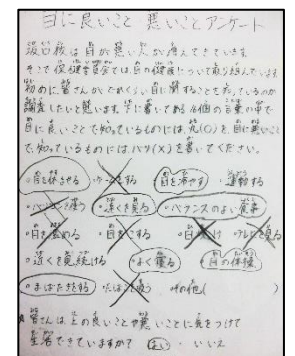 目に良いこと 悪いことアンケート
坂石校は目が悪い人が増えてきています。
そこで保健委員会では、目の健康について取り組んでいます
初めに皆さんがどのくらい目に関することを知っているのか
調査したいと思います。下に書いてある個の言葉の中で
目に良いことで知っているものには、丸(○)を、目に悪いこと
で、知っているものには、バツ(×)を書いてください。
・目を休ませる ・ゲームをする ・目を冷やす ・運動する
・パソコンを使う ・遠くを見る ・バランスのよい食事
・目を温める ・目をこする ・日 ・テレビを見る
・近くを見続ける ・よく寝る ・目の体操
・まばたきをする ・たばこを吸う ・その他( )
皆さんは上の良いことや悪いことに気をつけて
生活できていますか? はい ・ いいえ